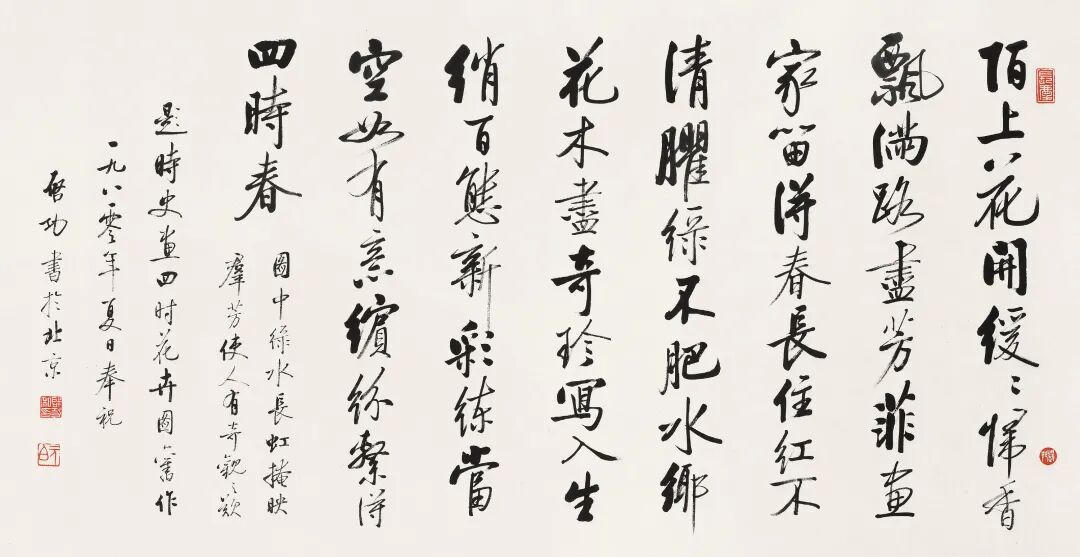 陌上花開緩緩歸香
飄滿路盡芳菲畫
家留得春長住紅不
清臞綠不肥水鄉
花木盡奇珍寫入生
綃百態新彩練當
空如有意繽紛繫得
四時春
圖中綠水長虹掩映
羣芳使人有奇觀之歎
題時史畫四時花卉圖舊作
一九八零年夏日奉祝
啓功書於北京